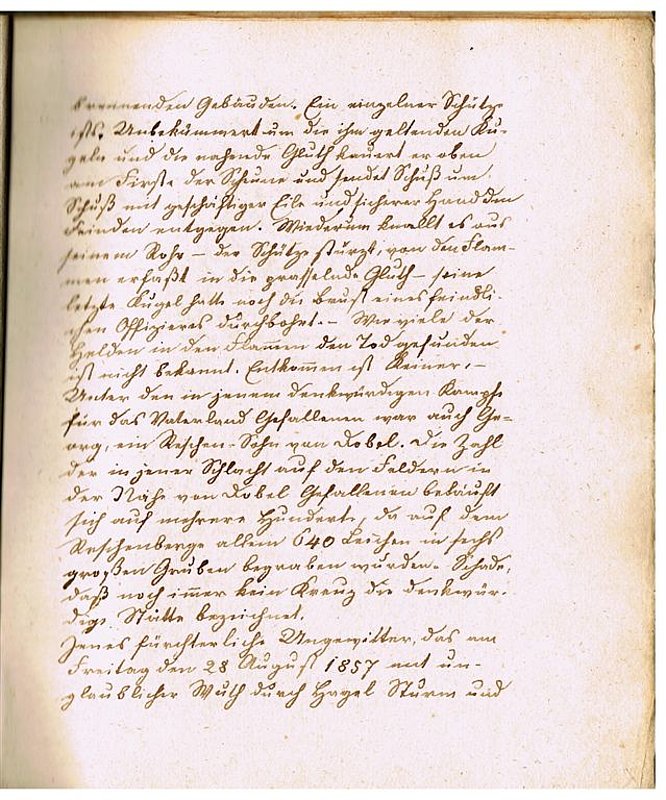 brennenden Gebäuden. Ein einzelner Schütze
ists. Unbekümmert um die ihm geltenden Ku-
geln und die nahende Gluth kauert er oben
am Firste der Scheune und sendet Schuß um
Schuß mit geschäftiger Eile und sicherer Hand den
Feinden entgegen. Wiederum knallt es aus
seinem Rohr – der Schütze stürzt, von den Flam-
men erfaßt in die prasselnde Gluth – seine
letzte Kugel hatte noch die Brust eines feindli-
chen Offizieres durchbohrt. – Wie viele der
Helden in den Flammen den Tod gefunden
ist nicht bekannt. Entkommen ist Keiner. –
Unter den in jenem denkwürdigen Kampfe
für das Vaterland Gefallenen war auch Ge=
org, ein Reschen-Sohn von Dobel. Die Zahl
der in jener Schlacht auf den Feldern in
der Nähe von Dobel Gefallenen beläuft
sich auf mehrere Hunderte, da auf dem
Reschenberge allein 640 Leichen in sechs
großen Gruben begraben wurden. Schade,
daß noch immer kein Kreuz die denkwür-
dige Stätte bezeichnet.
Jenes fürchterliche Ungewitter, das am
Freitag den 28 August 1857 mit un-
glaublicher Wuth durch Hagel Sturm und